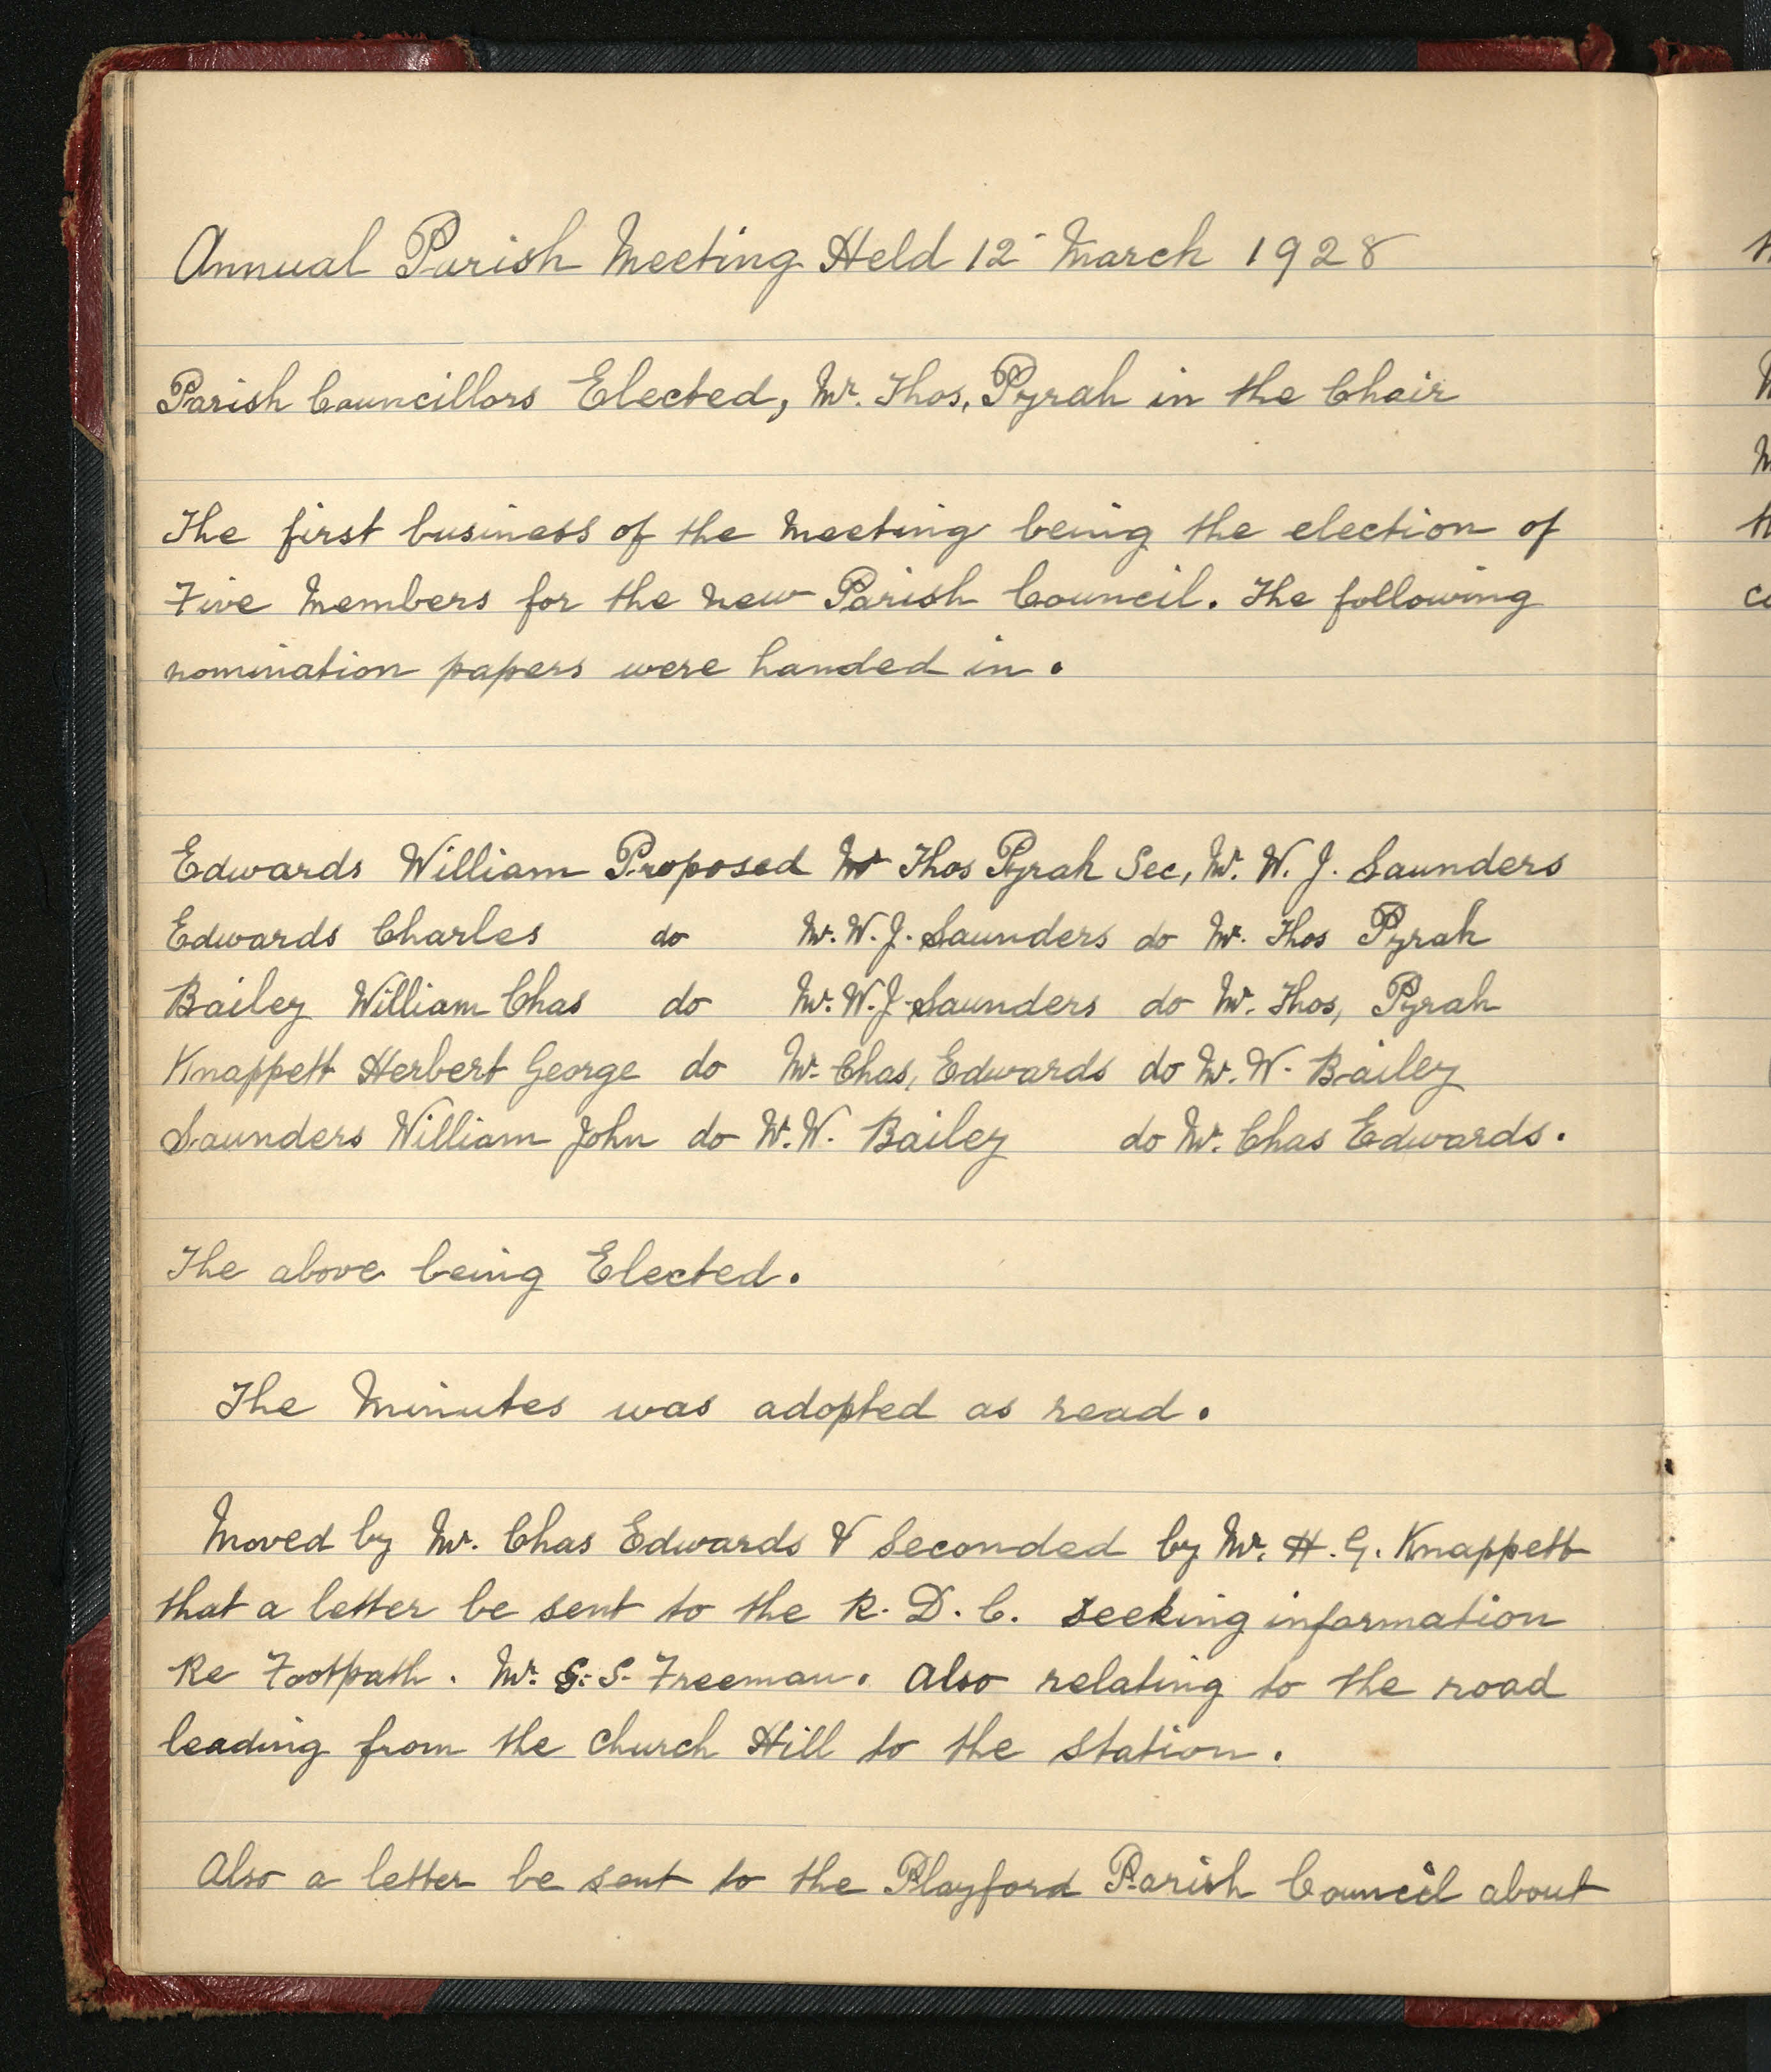 Annual Parish Meeting Held 12 March 1928
Parish Councillors Elected, Mr. Thos, Pyrah in the Chair
The first business of the Meeting being the election of
Five Members for the new Parish Council. The following
nomination papers were handed in.
Edwards William Proposed Mr Thos Pyrah Sec, Mr. W. J. Saunders
Edwards Charles do Mr. W. J. Saunders do Mr. Thos Pyrah
Bailey William Chas do Mr. W. J. Saunders do Mr. Thos, Pyrah
Knappett Herbert George do Mr. Chas, Edwards do Mr. W. Bailey
Saunders William John do W. W. Bailey do Mr. Chas Edwards.
The above being Elected.
The Minutes was adopted as read.
Moved by Mr. Chas Edwards & Seconded by Mr. H. G. Knappett
that a letter be sent to the R. D. C. seeking information
Re Footpath. Mr. G. S. Freeman. Also relating to the road
leading from the Church Hill to the Station.
Also a letter be sent to the Playford Parish Council about